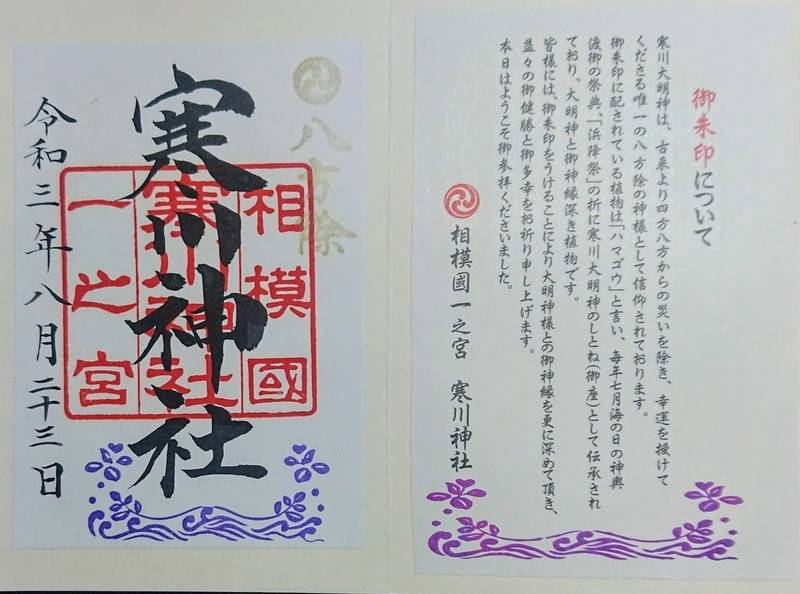 御朱印について
寒川大明神は、古来より四方八方からの災いを除き、幸運を授けて
くださる唯一の八方除の神様として信仰されております。
御朱印に配されている植物は「ハマゴウ」と言い、毎年七月海の日の神輿
渡御の祭典、「浜降祭」の折に寒川大明神のしとね(御座)として伝承され
ており、大明神と御神縁深き植物です。
皆様には、御朱印をうけることにより大明神様との御神縁を更に深めて頂き、
益々の御健勝と御多幸をお祈り申し上げます。
本日はようこそ御参拝くださいました。
相模國一之宮　寒川神社
八方除
相模國
寒川神社
一之宮
寒川神社
令和三年八月二十三日